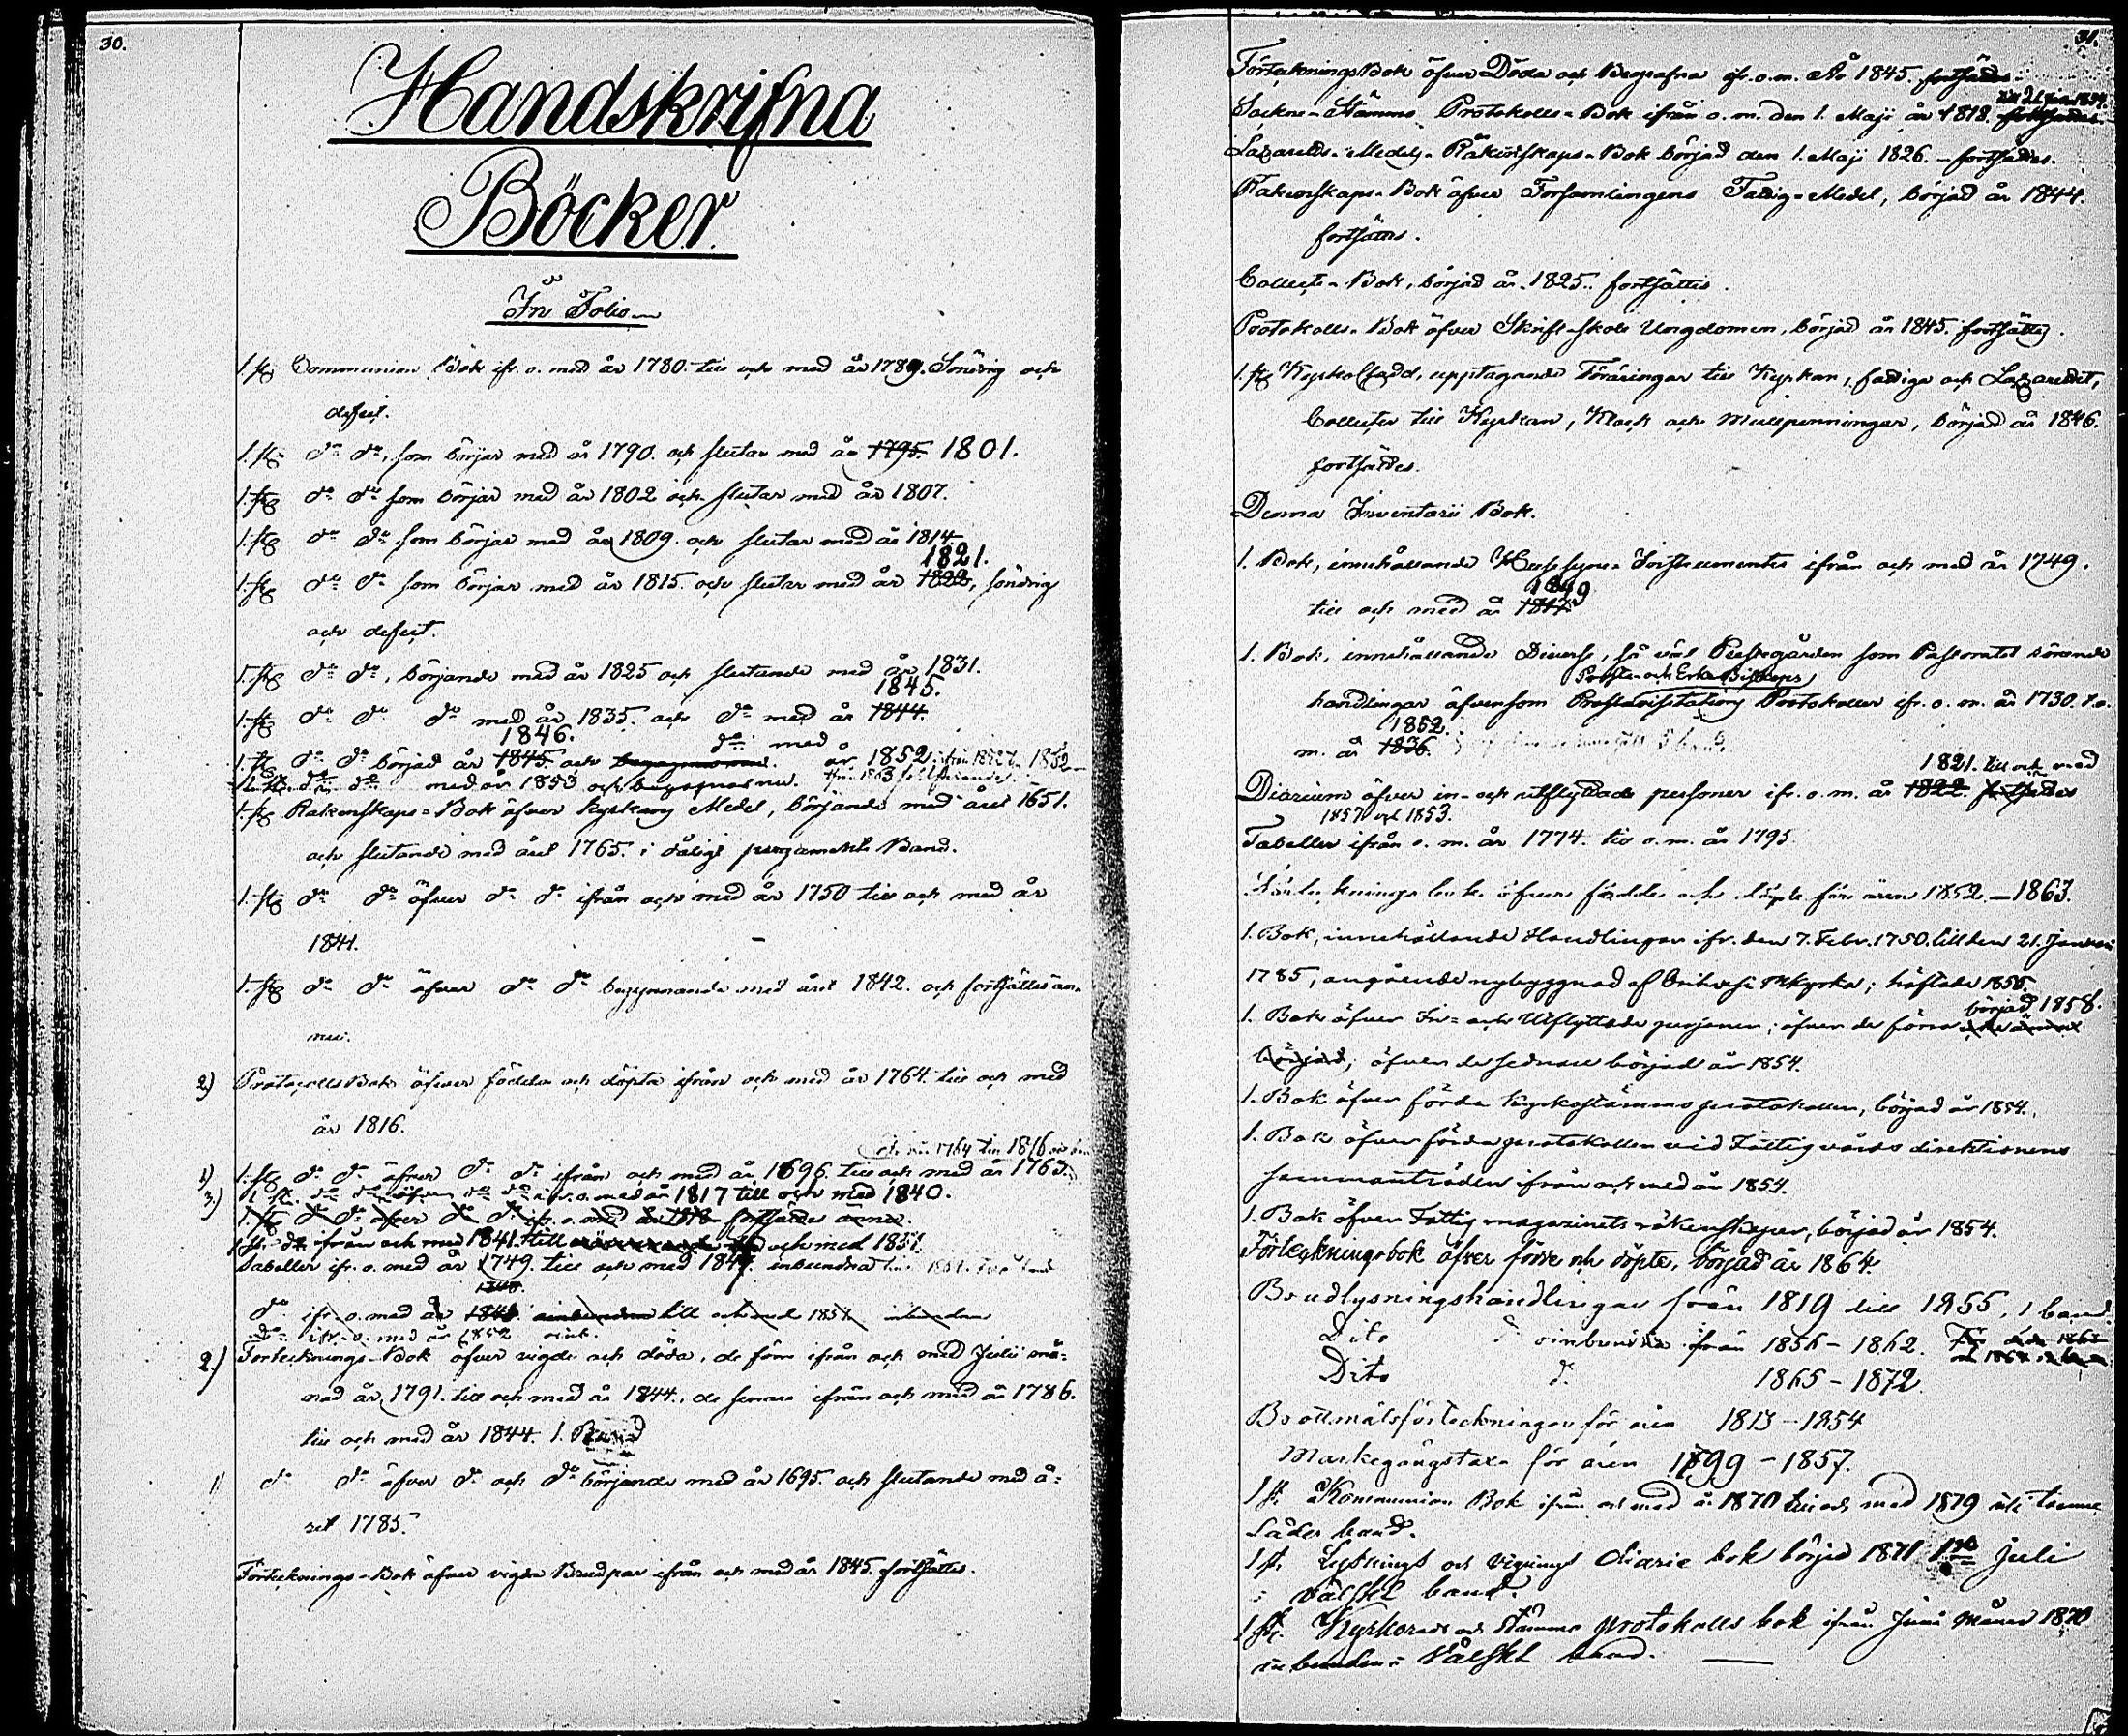 30.
Handskrifna
Böcker
In Folio
1. st. Communion Bok ifr. o. med år 1780 till och med år 1789. Söndrig och
defect.
1. st. do do, som börjar med år 1790. och slutar med år 1795. 1801.
1. st. do do som börjar med år 1802 och slutar med år 1807.
1. st. do do som börjar med år 1809. och slutar med år 1814.
1821.
1. st. do do som börjar med år 1815. och slutar med år 1822, söndrig
och defect.
1. st. do do, börjande med år 1825 och slutande med år 1831.
1845.
1. st. do do do med år 1835. och do med år 1844.
1846. do med
1. st. do do börjad år 1845 och begagnas nu. år 1852
do do med år 1853 och begagnas nu.
1. st. Räkenskaps-Bok öfver Kyrkans Medel, börjande med året 1651.
och slutande med året 1765. i dåligt pergaments Band.
1. st. do do öfver do do ifrån och med år 1750 till och med år
1841.
1. st. do do öfver do do begynnande med året 1842. och fortsättes än-
nu.
2) Protocolls Bok öfver födda och döpta ifrån och med år 1764. till och med
år 1816.
1764 till 1816
1) 1. st. do do öfver do do ifrån och med år 1696. till och med år 1763.
3.) 1 st. do do öfver do do ifr. o. med år 1817 till och med 1840.
1. st. do do öfver do do ifr. o. med år 1818 fortsättes ännu.
1 st. do ifrån och med 1841. till och med 1851.
Tabeller ifr. o. med år 1749. till och med 1847. inbundna
do ifr. o. med år 1848 oinbundna till och med 1857 inbundna
do ifr. o. med år 1852 oinb.
2.) Förtecknings-Bok öfver vigde och döda, de förre ifrån och med Julii må-
nad år 1791. till och med år 1844., de senare ifrån och med år 1786.
till och med år 1844. 1. Band
1) do do öfver do och do börjande med år 1695. och slutande med å-
ret 1785.
Förtecknings-Bok öfver vigda Brudpar ifrån och med år 1845. fortsättes.
31.
Förtecknings Bok öfver Döda och Begrafna ifr. o. m. År 1845. fortsättes.
Sockne-Stämmo Protokolls-Bok ifrån o. m. den 1. Maji år 1818. fortsättes.
Lazaretts-Medels-Räkenskaps-Bok börjad den 1. Maji 1826. - fortsättes.
Räkenskaps-Bok öfver Församlingens Fattig-Medel, börjad år 1844.
fortsättes.
Collect-Bok, börjad år 1825. fortsättes.
Protokolls-Bok öfver Skriftskole Ungdomen, börjad år 1845. fortsättes.
1. st. Kyrkokladd, upptagande Föräringar till Kyrkan, fattiga och Lazarettet,
Collecter till Kyrkan, Klock och Mullpenningar, börjad år 1846.
fortsättes.
Denna Inventarii Bok.
1. Bok, innehållande Huussyns-Instrumenter ifrån och med år 1749.
1849
till och med år 1847.
1. Bok, innehållande Diverse, så väl Prestegården som Pastoratet rörande
Prosts- och Erke Biskops
handlingar äfvensom Prostvisitations Protokoller ifr. o. m. år 1730. t. o.
1852.
m. år 1836.
1821. till och med
Diarium öfver in- och utflyttade personer ifr. o. m. år 1822. fortsättes
1857 och 1853.
Tabeller ifrån o. m. år 1774. till o. m. år 1795.
Förtecknings bok öfver födde och döpte från åren 1852. - 1863.
1. Bok, innehållande Handlingar ifr. den 7. Febr. 1750. till den 21. Januari
1785, angående nybyggnad af kyrka; häftade 1855.
börjad 1858.
1. Bok öfver In- och Utflyttade personer; öfver de förra
börjad; öfver de sednare börjad år 1854.
1. Bok öfver förda kyrkostämmoprotokoller, börjad år 1854.
1. Bok öfver förda protokoller vid Fattigvårds direktionens
sammanträden ifrån och med år 1854.
1. Bok öfver Fattigmagazinets räkenskaper, börjad år 1854.
Förteckningsbok öfver födde och döpte, börjad år 1864.
Brudlysningshandlingar från 1819 till 1855, 1 band.
Dito do oinbundna från 1856 - 1862.
Dito do 1865 - 1872.
Brottmålsförteckningar för åren 1813 - 1854
Markegångstaxa för åren 1799 - 1857.
1 st. Kommunion Bok ifrån och med år 1870 till och med 1879 uti
Läder band.
1 st. Lysnings och Vignings diarie bok börjad 1871 Juli
i Välskt band.
1 st. Kyrkoråds och Stämmo protokolls bok ifrån Juni Månad 1870
inbunden i Välskt band.